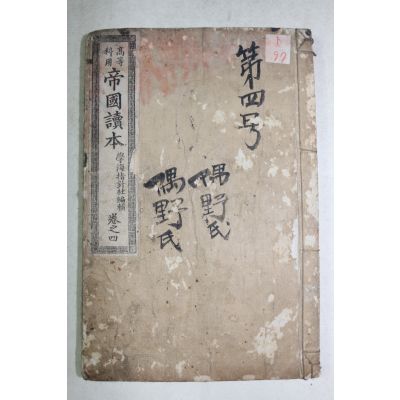 第四号
偶野氏
偶野氏
高等
科用
帝國讀本
學海指針社編輯
卷之四
D
97